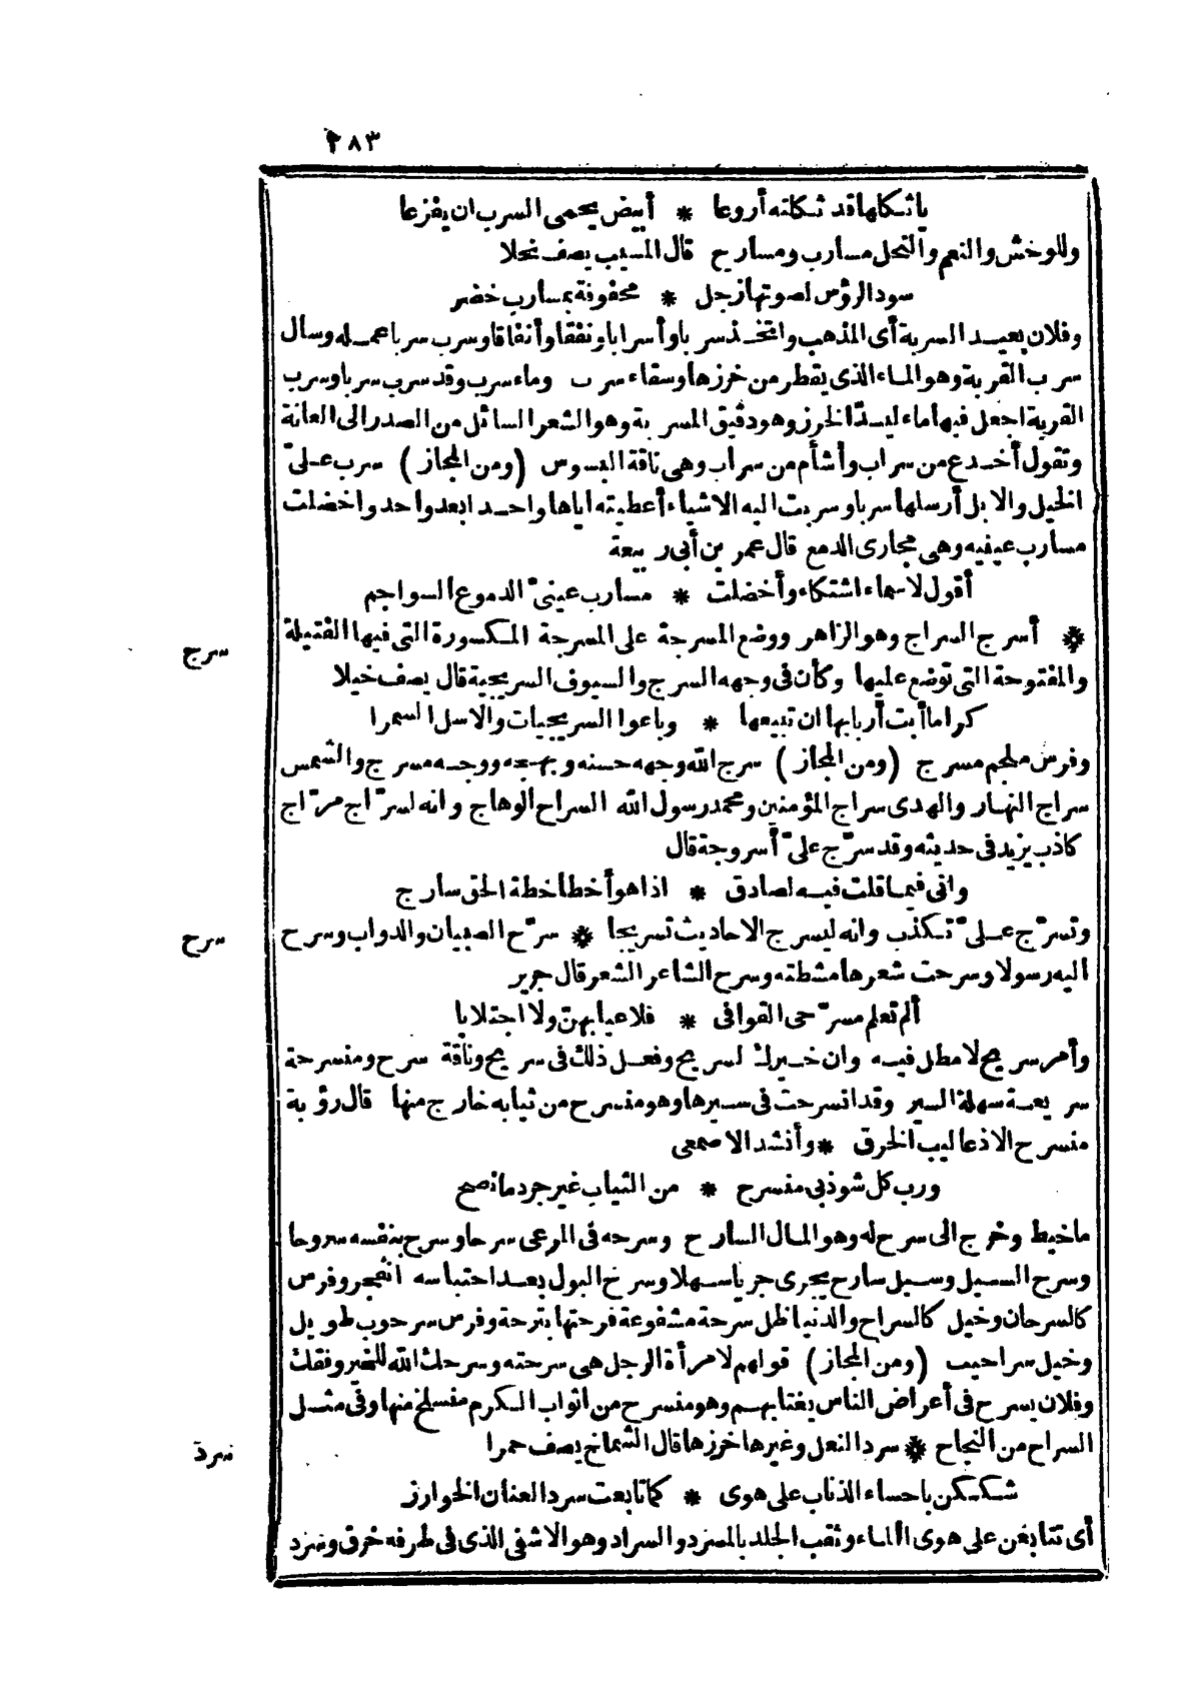 ٢٨٣
ياثكلها قد ثكلته أروعا * أبيض يحمى السرب ان يفزعا
وللوحش والنعم والنحل مسارب ومسارح قال المسيب يصف نحلا
سود الرؤس لصوتها زجل * محفوفة بمسارب خضر
وفلان بعيد السربة أى المذهب واتخذ سربا وأسرابا ونفقا وأنفاقا وسرب سربا عمله وسال
سرب القربة وهو الماء الذى يقطر من خرزها وسقاء سرب وماء سرب وقد سرب سربا وسرب
القربة اجعل فيها ماء ليسدّ الخرز وهو دقيق المسربة وهو الشعر السائل من الصدر الى العانة
وتقول أخدع من سراب وأشأم من سراب وهى ناقة البسوس (ومن المجاز) سرب علىّ
الخيل والابل أرسلها سربا وسربت اليه الاشياء أعطيته اياها واحدا بعد واحد واخضلت
مسارب عينيه وهى مجارى الدمع قال عمر بن أبى ربيعة
أقول لاسماء اشتكاء وأخضلت * مسارب عينىّ الدموع السواجم
* أسرج السراج وهو الزاهر ووضع المسرجة على المسرجة المكسورة التى فيها الفتيلة
سرج
والمفتوحة التى توضع عليها وكأن فى وجهه السرج والسيوف السريجية قال يصف خيلا
كراما أبت أربابها ان تبيعها * وباعوا السريجيات والاسل السمرا
وفرس ملجم مسرج (ومن المجاز) سرج الله وجهه حسنه وبهجه ووجه مسرج والشمس
سراج النهار والهدى سراج المؤمنين ومحمد رسول الله السراج الوهاج وانه لسرّاج مرّاج
كاذب يزيد فى حديثه وقد سرّج علىّ أسروجة قال
وانى فيما قلت فيه لصادق * اذا هو أخطا خطة الحق سارج
وتسرّج علىّ تكذب وانه ليسرج الاحاديث تسريجا * سرّح الصبيان والدواب وسرح
سرح
اليه رسولا وسرحت شعرها مشطته وسرح الشاعر الشعر قال جرير
ألم تعلم مسرّحى القوافى * فلا عيا بهنّ ولا اجتلابا
وأمر سريح لا مطل فيه وان خيرك لسريح وفعل ذلك فى سريح وناقة سرح ومنسرحة
سريعة سهلة السير وقد انسرحت فى سيرها وهو منسرح من ثيابه خارج منها قال رؤبة
منسرح الاذعاليب الخرق * وأنشد الاصمعى
ورب كل شوذبى منسرح * من الثياب غير جرد ما نصح
ما خيط وخرج الى سرح له وهو المال السارح وسرحه فى المرعى سرحا وسرح بنفسه سروحا
وسرح السيل وسيل سارح يجرى جريا سهلا وسرح البول بعد احتباسه انفجر وفرس
كالسرحان وخيل كالسراح والدنيا ظل سرحة مشفوعة فرحتها بترحة وفرس سرحوب طويل
وخيل سراحيب (ومن المجاز) قولهم لامرأة الرجل هى سرحته وسرحك الله للخير وفقك
وفلان يسرح فى أعراض الناس يغتابهم وهو منسرح من اثواب الكرم منسلخ منها وفى مثل
السراح من النجاح * سرد النعل وغيرها خرزها قال الشماخ يصف حمرا
سرد
شككن باحساء الذناب على هوى * كما تابعت سرد العنان الخوارز
أى تتابعن على هوى الماء وثقب الجلد بالمسرد والسراد وهو الاشفى الذى فى طرفه خرق وسرد